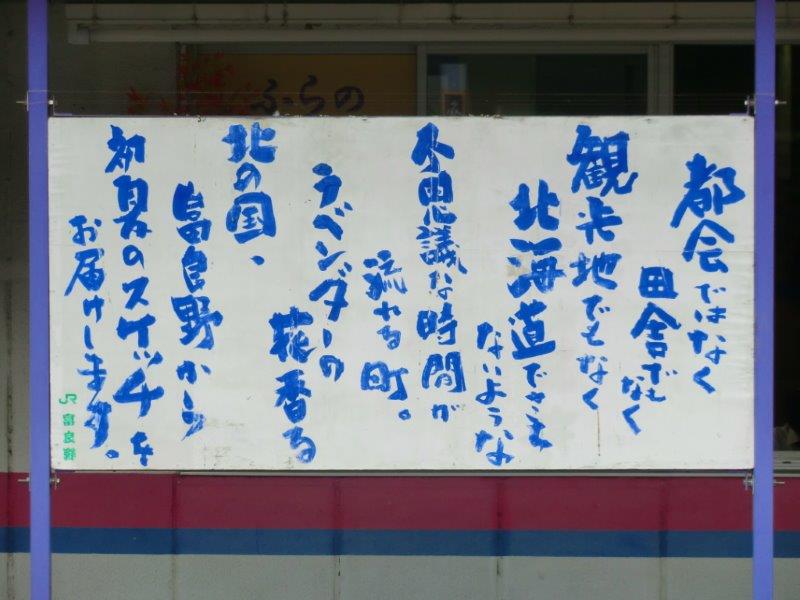 都会ではなく
田舎でもなく
観光地でもなく
北海道でさえ
ないような
不思議な時間が
流れる町。
ラベンダーの
花香る
北の国、
富良野から
初夏のスケッチを
お届けします。
JR富良野
ふらの